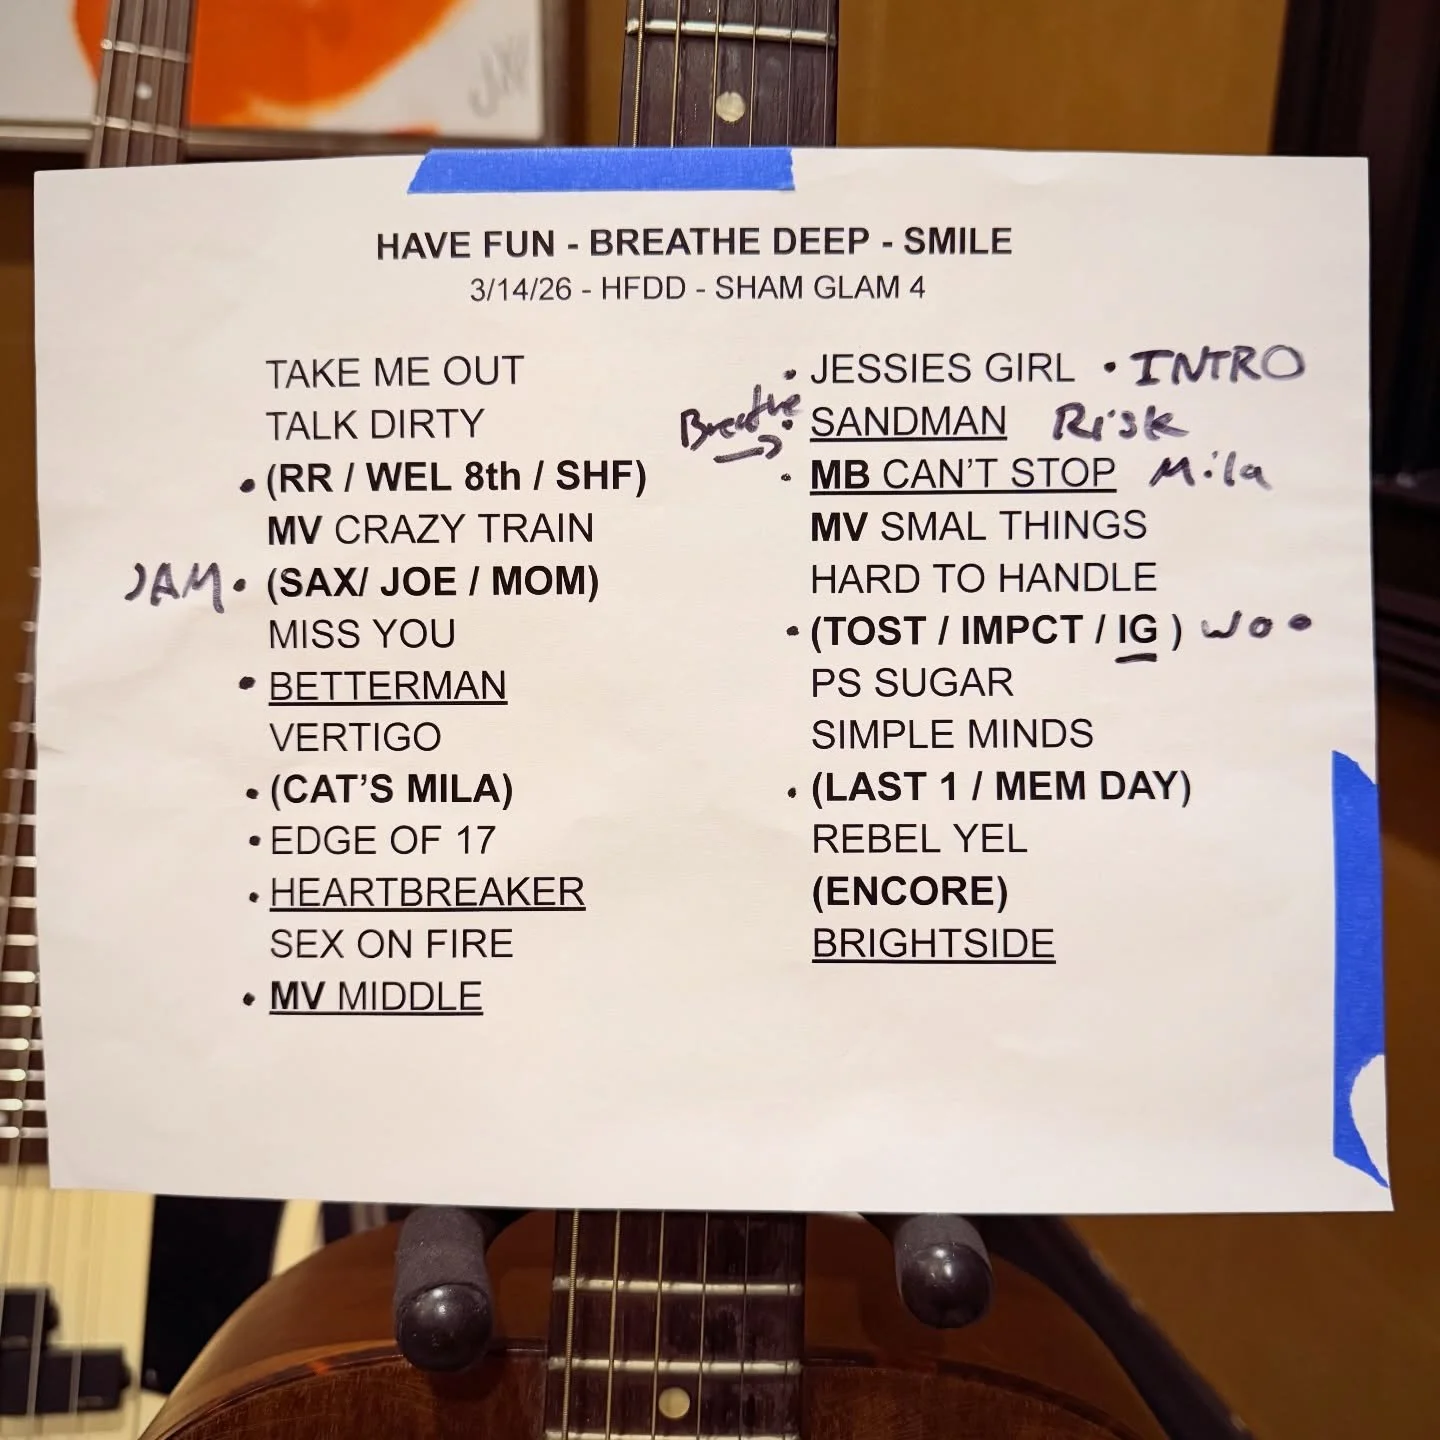 HAVE FUN - BREATHE DEEP - SMILE
3/14/26 - HFDD - SHAM GLAM 4
TAKE ME OUT
TALK DIRTY
• (RR / WEL 8th / SHF)
MV CRAZY TRAIN
JAM • (SAX/ JOE / MOM)
MISS YOU
• BETTERMAN
VERTIGO
• (CAT'S MILA)
• EDGE OF 17
• HEARTBREAKER
SEX ON FIRE
• MV MIDDLE
• JESSIES GIRL • INTRO
Breathe → • SANDMAN Risk
• MB CAN'T STOP Mila
MV SMAL THINGS
HARD TO HANDLE
• (TOST / IMPCT / IG ) WOO
PS SUGAR
SIMPLE MINDS
• (LAST 1 / MEM DAY)
REBEL YEL
(ENCORE)
BRIGHTSIDE